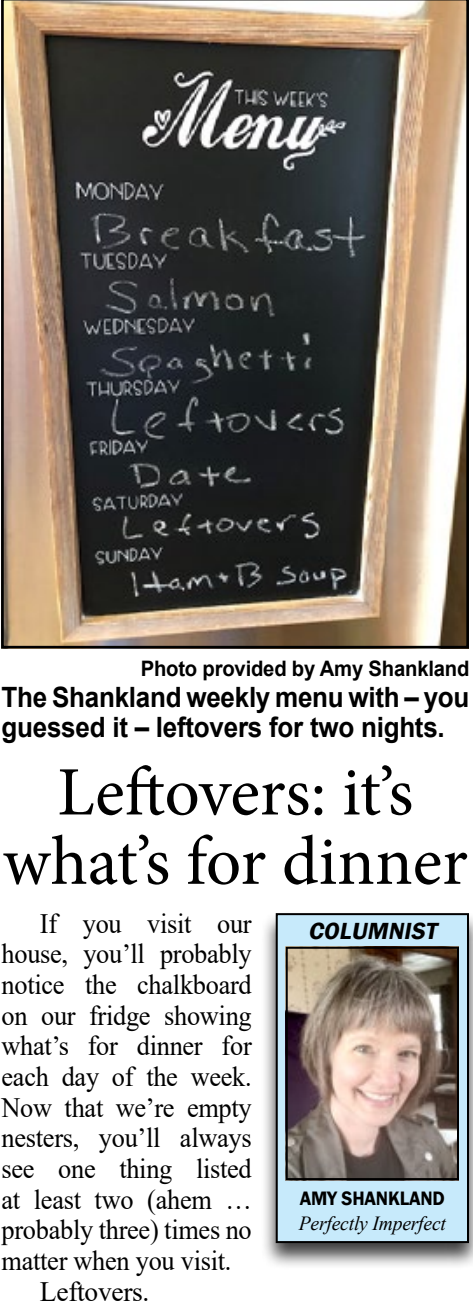 THIS WEEK'S
Menu
MONDAY
Breakfast
TUESDAY
Salmon
WEDNESDAY
Spaghetti
THURSDAY
Leftovers
FRIDAY
Date
SATURDAY
Leftovers
SUNDAY
Ham + B Soup
Photo provided by Amy Shankland
The Shankland weekly menu with – you
guessed it – leftovers for two nights.
Leftovers: it's
what's for dinner
If you visit our
house, you'll probably
notice the chalkboard
on our fridge showing
what's for dinner for
each day of the week.
Now that we're empty
nesters, you'll always
see one thing listed
at least two (ahem …
probably three) times no
matter when you visit.
Leftovers.
COLUMNIST
AMY SHANKLAND
Perfectly Imperfect